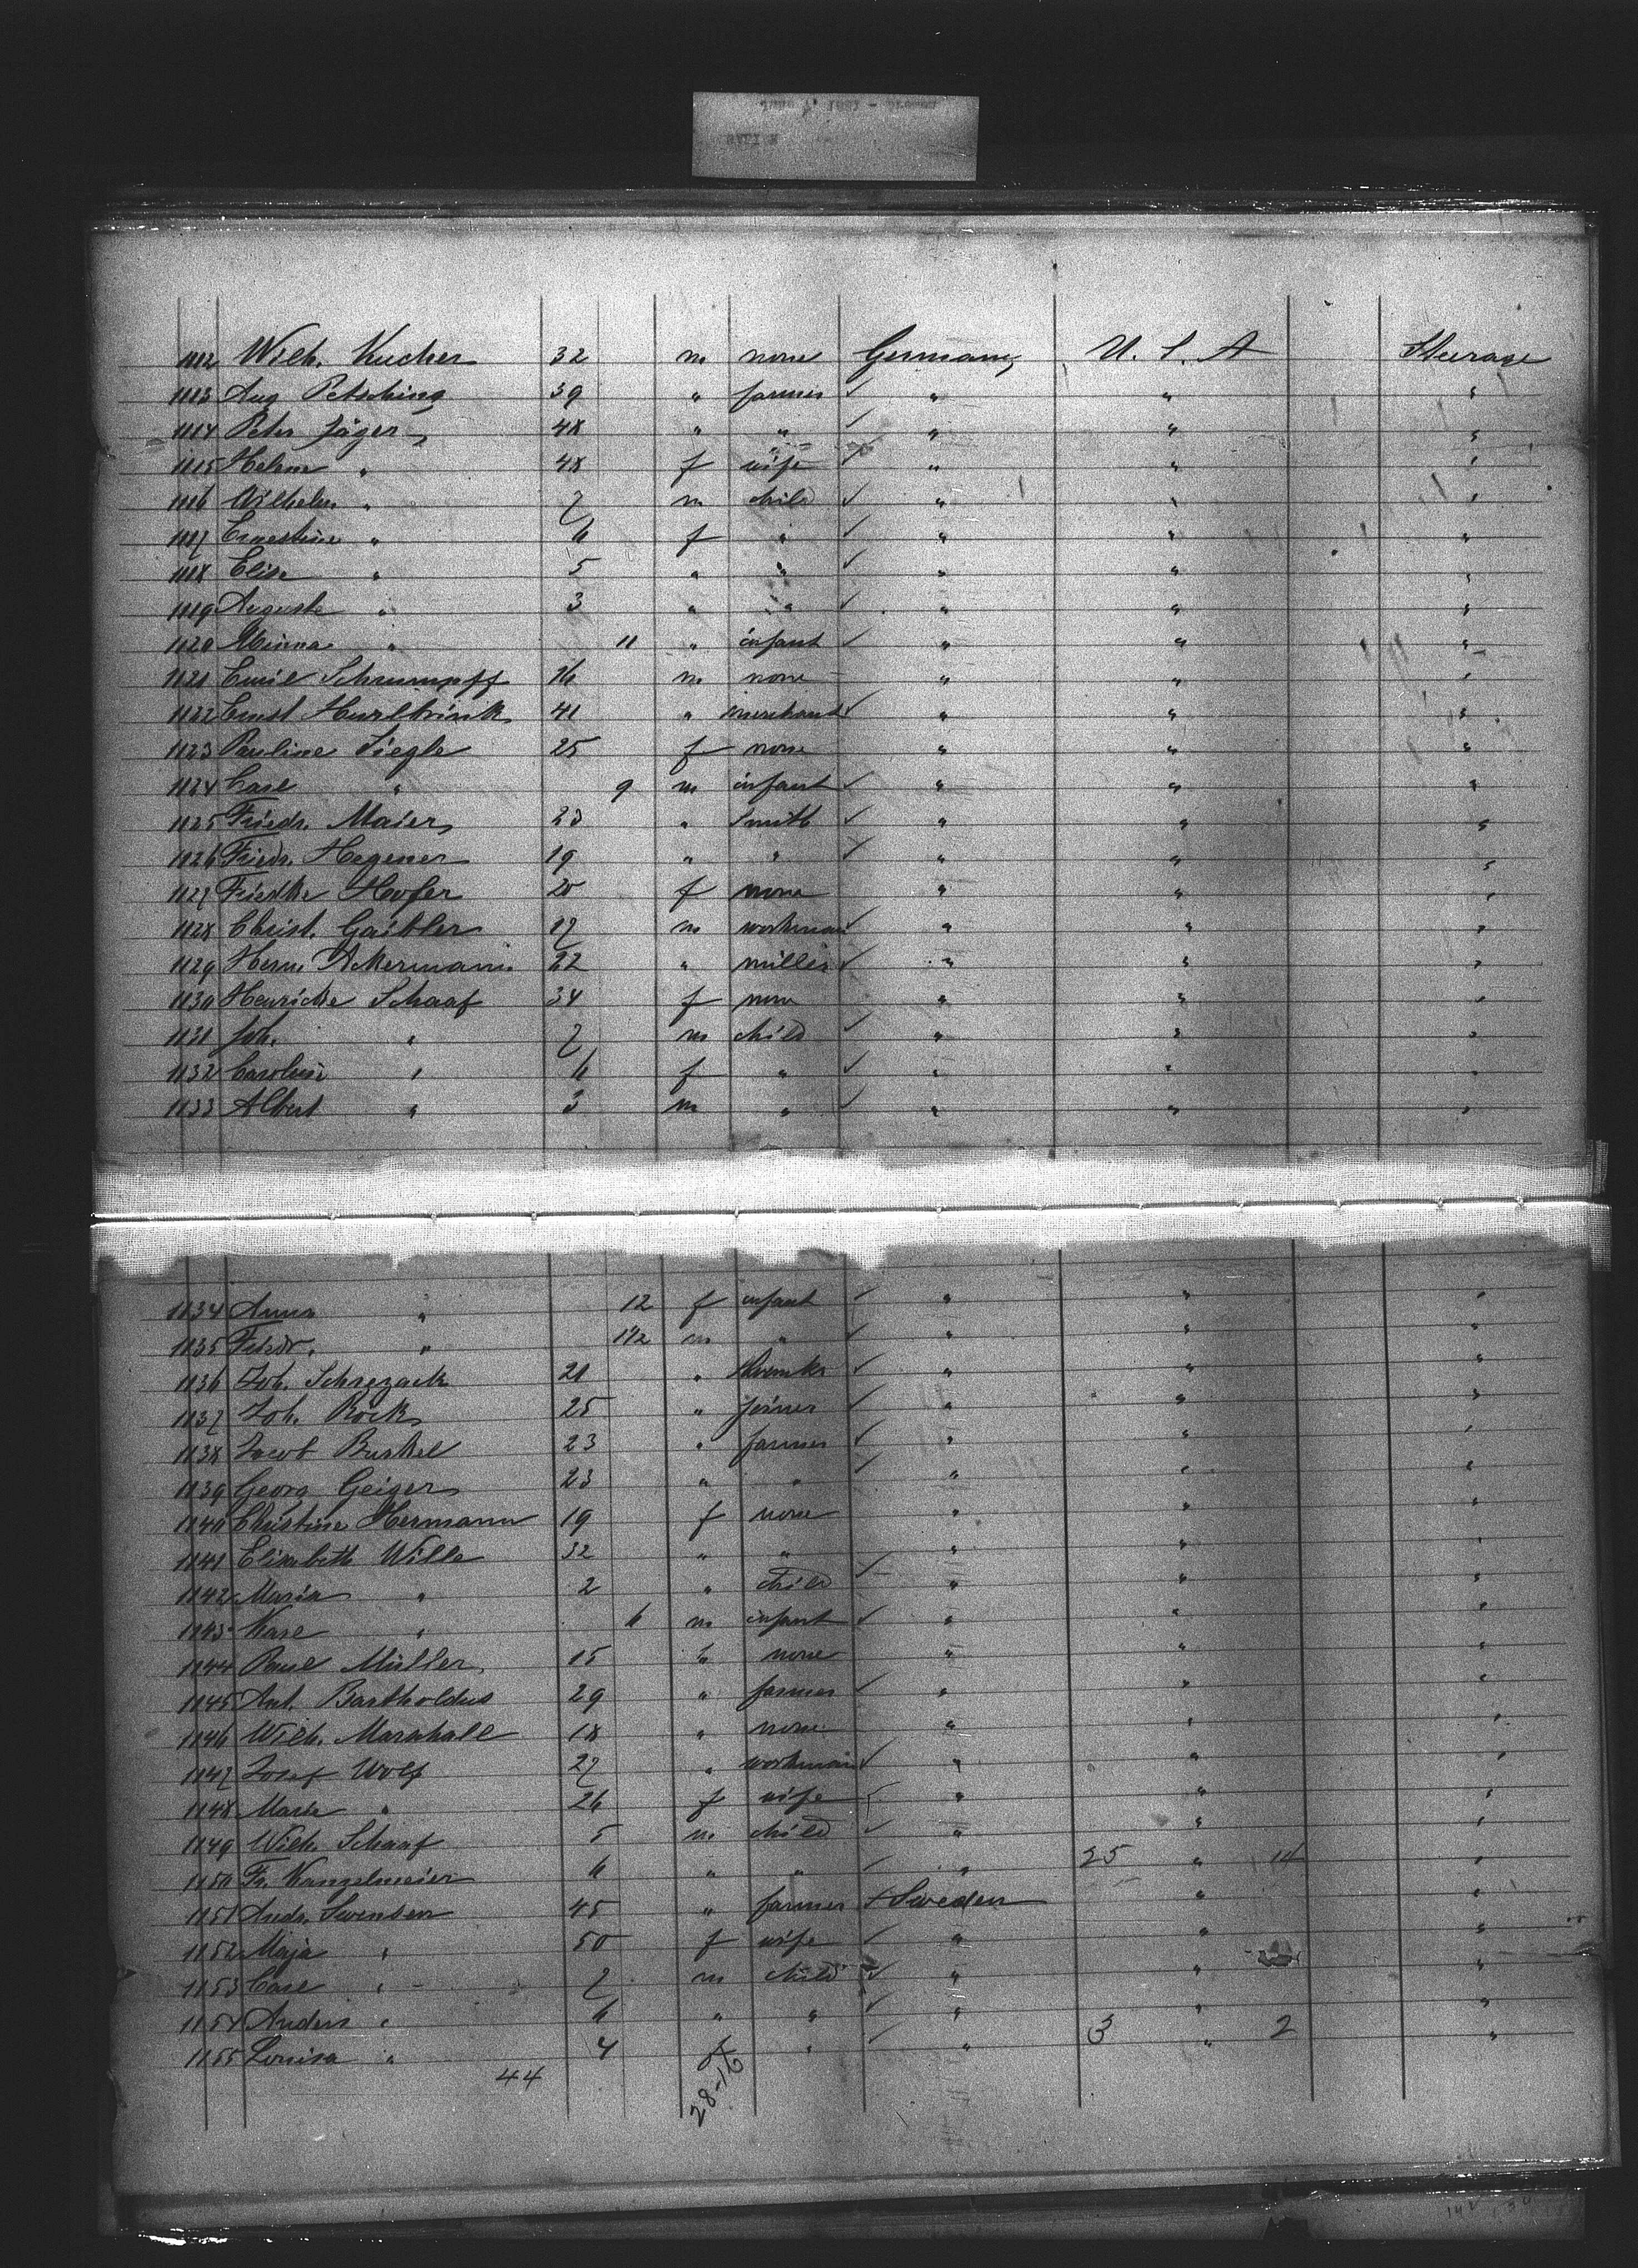 1112 Wilh. Kucher 32 m none Germany U. S. A Steerage
1113 Aug Petsching 39 " farmer ✓ " " "
1114 Peter Jäger 48 " " ✓ " " "
1115 Helene " 48 f wife ✓ " " "
1116 Wilhelm " 7 m child ✓ " " "
1117 Ernestine " 6 f " ✓ " " "
1118 Elise " 5 " " ✓ " " "
1119 Auguste " 3 " " ✓ " " "
1120 Minna " 11 " infant ✓ " " "
1121 Emil Schrumpff 16 m none " " "
1122 Ernst Hurlbrink 41 " merchant ✓ " " "
1123 Pauline Siegle 25 f none " " "
1124 Carl " 9 m infant ✓ " " "
1125 Friedr. Maier 23 " Smith ✓ " " "
1126 Friedr. Hegener 19 " " ✓ " " "
1127 Friedke Hofer 20 f none " " "
1128 Christ. Gaibler 17 m workman ✓ " " "
1129 Herm. Akermann 22 " miller ✓ " " "
1130 Henricke Schaaf 34 f none " " "
1131 Joh. " 7 m child ✓ " " "
1132 Caroline " 6 f " ✓ " " "
1133 Albert " 3 m " ✓ " " "
1134 Anna " 12 f infant ✓ " " "
1135 Friedr. " 1½ m " ✓ " " "
1136 Joh. Schrezack 21 " ✓ " " "
1137 Joh. Rock 25 " joiner ✓ " " "
1138 Jacob Burkel 23 " farmer ✓ " " "
1139 Georg Geiger 23 " " ✓ " " "
1140 Christine Hermann 19 f none " " "
1141 Elisabeth Wille 32 " " " " "
1142 Maria " 2 " child ✓ " " "
1143 Karl " 6 m infant ✓ " " "
1144 Paul Müller 15 " none " " "
1145 Ant. Bartholdus 29 " farmer ✓ " " "
1146 Wilh. Marshall 18 " none " " "
1147 Josef Wolf 27 " workman ✓ " " "
1148 Marie " 26 f wife " " "
1149 Wilh. Schaaf 5 m child ✓ " " "
1150 Fr. Kanzelmeier 6 " " ✓ " 25 " 14 "
1151 Andr. Swensen 45 " farmer Sweden " "
1152 Maja " 50 f wife ✓ " " "
1153 Carl " 7 m child ✓ " " "
1154 Anders " 6 " " ✓ " " "
1155 Louisa " 4 f " ✓ " 3 " 2 "
44 28-16